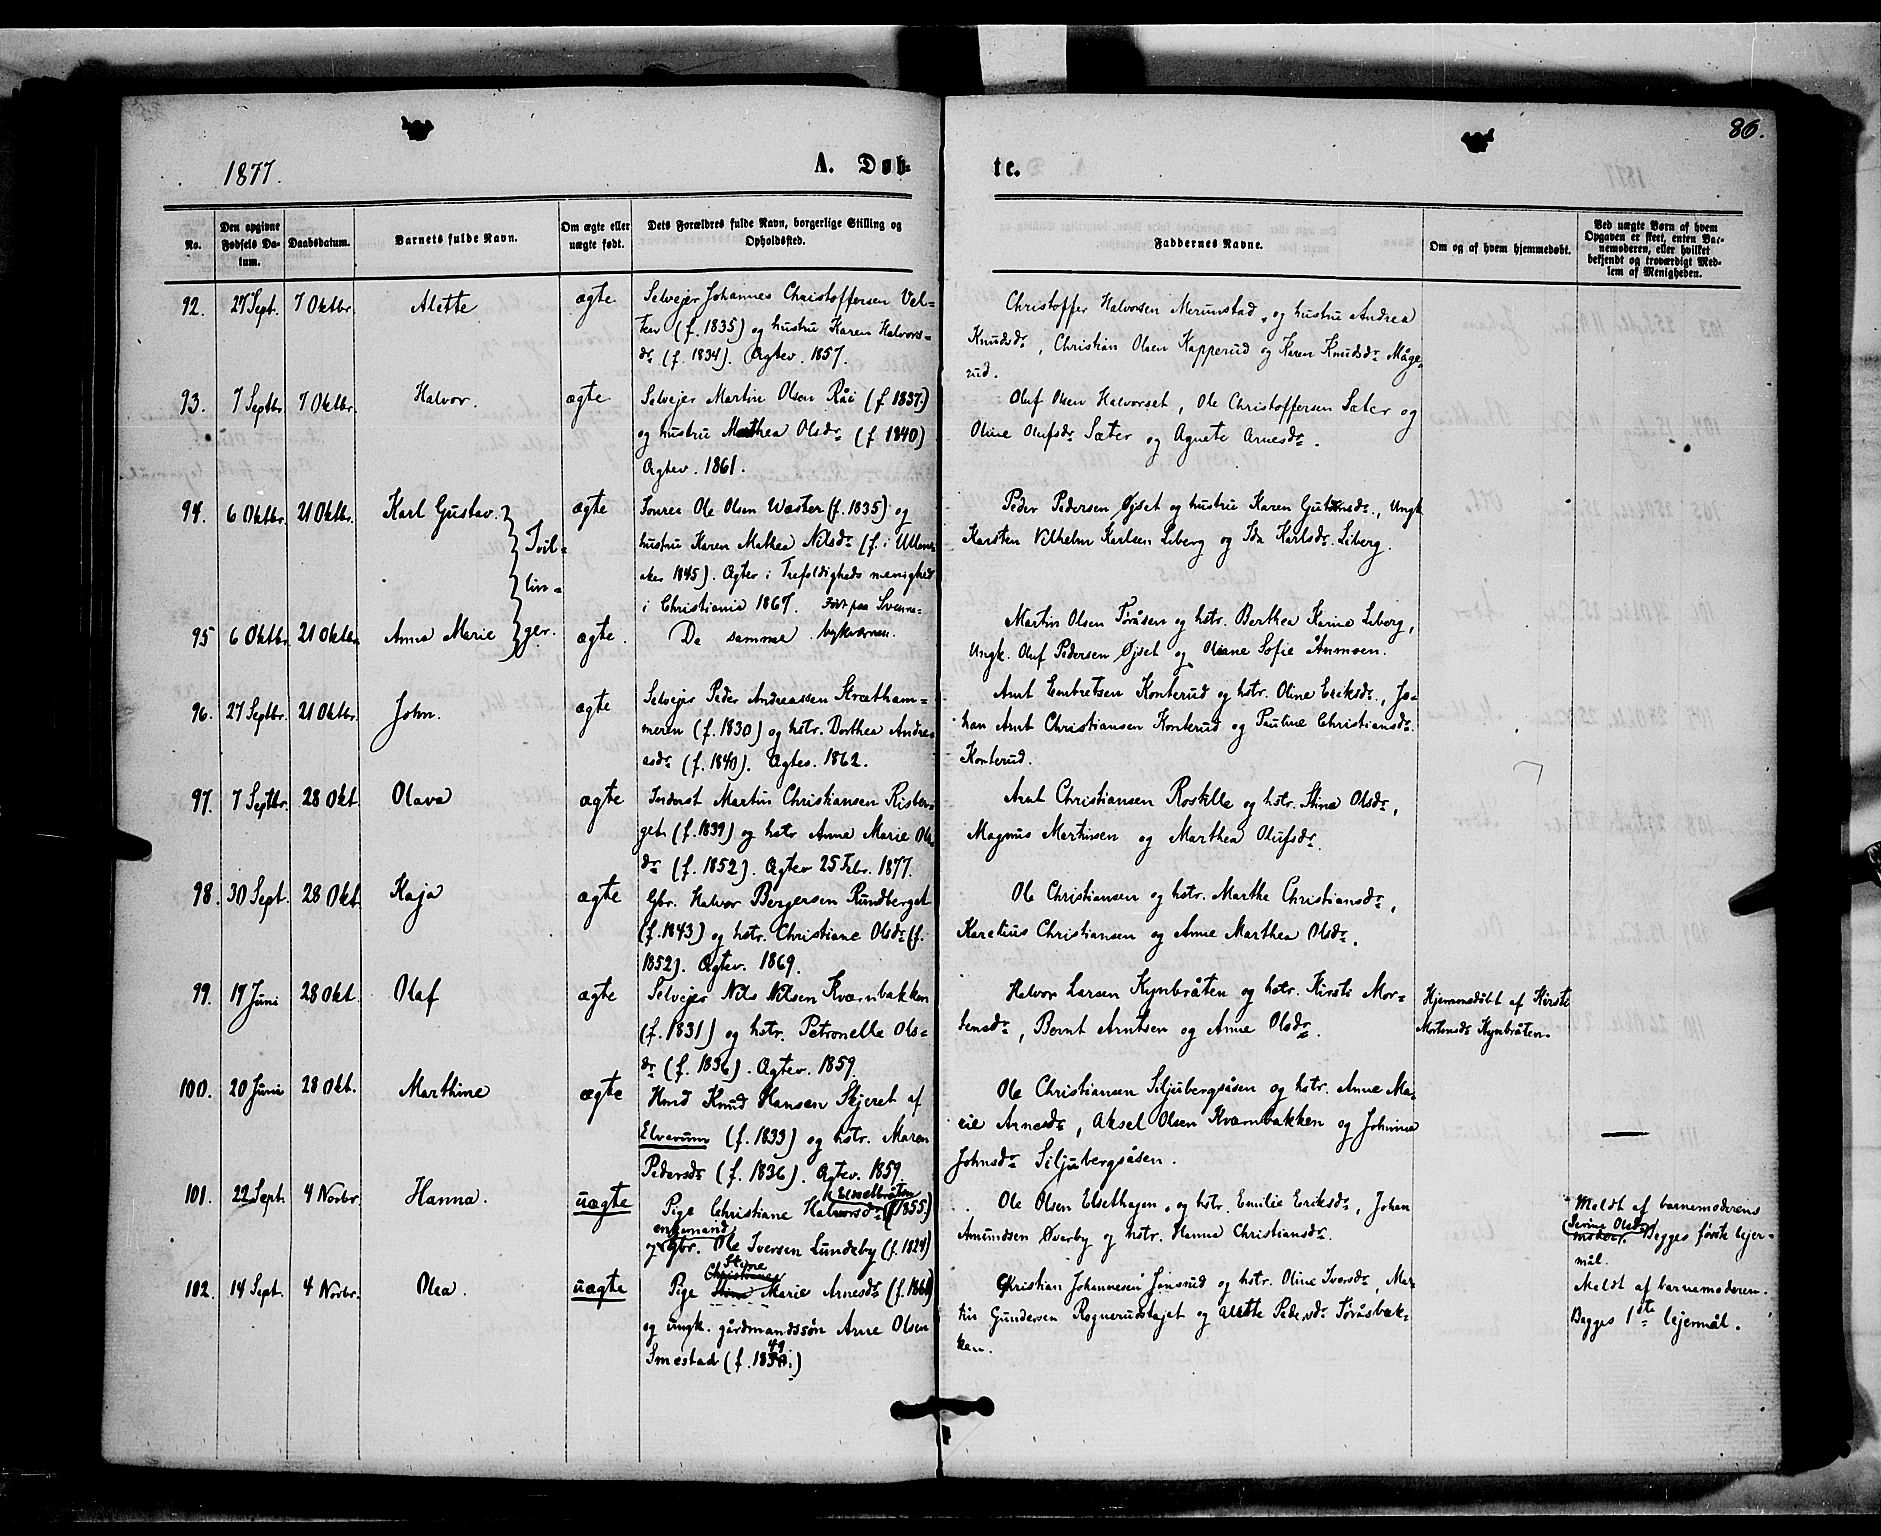 86.
1877.
A. Døb-
te.
No.
Den opgivne Fødsels Datum.
Daabsdatum.
Barnets fulde Navn.
Om ægte eller uægte født.
Dets Forældres fulde Navn, borgerlige Stilling og Opholdssted.
Faddernes Navne.
Om og af hvem hjemmedøbt.
Ved uægte Børn af hvem Opgaven er skeet, enten Barnemoderen, eller hvilket bekjendt og troværdigt Medlem af Menigheden.
92. 27 Sept. 7 Oktbr. Alette ægte
Selvejer Johannes Christoffersen Vel-
ter (f. 1835) og hustru Karen Halvors-
dr. (f. 1834). Ægtev. 1857.
Christoffer Halvorsen Merunstad, og hustru Andrea
Knudsdr., Christian Olsen Kapperud og Karen Knudsdr. Måge-
rud.
93. 7 Septbr. 7 Oktbr. Halvor. ægte
Selvejer Martin Olsen Råi (f 1837.)
og hustru Mathea Olsdr. (f. 1840)
Ægtev. 1861.
Oluf Olsen Halvorset, Ole Christoffersen Sæter og
Oline Olufsdr. Sæter og Agnete Arnesdr.
94. 6 Oktbr. 21 Oktbr. Karl Gustav. ægte
Tvil-
lin-
ger.
Ole Olsen Wæster (f. 1835) og
hustru Karen Mathea Nilsdr. (f. i Ullens-
aker 1845). Ægtev i Trefoldigheds menighed
i Christiania 1867. Født paa Svenne-
bykværnen.
Peder Pedersen Øjset og hustru Karen, Ungk.
Karsten Vilhelm Karlsen Liberg og Ida Karlsdr. Liberg.
95 6 Oktbr. 21 Oktbr. Anna Marie ægte. De samme
Martin Olsen Toråsen og hstr. Berthea Karine Liberg,
Ungk. Oluf Pedersen Øjset og Oliane Sofie Ånmoen.
96. 27 Septbr. 21 Oktbr. John. ægte
Selvejer Peder Andreassen Strætham-
meren (f. 1830) og hstr. Dorthea Andre-
asdr. (f. 1840). Ægtev. 1862.
Arnt Embretsen Konterud og hstr. Oline Eriksdr., Jo-
han Arnt Christiansen Konterud og Pauline Christiansdr.
Konterud.
97. 7 Septbr. 28 Okt Olava ægte
Inderst Martin Christiansen Risber-
get (f. 1839) og hstr Anne Marie Ols-
dr. (f. 1852). Ægtev 25 Febr. 1877.
Arnt Christiansen Roskille og hstr. Stina Olsdr.,
Magnus Martinsen og Marthea Olufsdr.
98. 30 Sept. 28 Okt. Kaja ægte
Gbr. Halvor Bergersen Rundberget
(f. 1843) og hstr. Christiane Olsdr. (f.
1852). Ægtev. 1869.
Ole Christiansen og hstr. Marthe Christiansdr.,
Karelius Christiansen og Anne Marthea Olsdr.
99. 19 Juni 28 Okt. Olaf ægte
Selvejer Nils Nilsen Kværnbakken
(f. 1831) og hstr. Petronelle Ols-
dr. (f. 1836). Ægtev. 1859.
Halvor Larsen Kynbråten og hstr. Kirsti Mor-
tensdr., Bernt Arntsen og Anne Olsdr.
Hjemmedøbt af Kirsti
Mortensdr. Kynbråten.
100. 20 Juni 28 Okt. Marthine ægte
Hmd Knud Hansen Skjeret af
Elverum (f. 1833) og hstr. Maren
Pedersdr. (f. 1836). Ægtev. 1859
Ole Christiansen Siljubergsåsen og hstr. Anne Ma-
rie Arnesdr., Aksel Olsen Kværnbakken og Johnina
Johnsdr. Siljubergsåsen.
101. 22 Sept. 4 Novbr. Hanna. uægte
Pige Christiane Halvorsdr. (f 1855.)
enkemand
og Gbr. Ole Iversen Lundeby (f. 1824)
Ole Olsen Elsethagen, og hstr. Emilie Eriksdr., Johan
Amundsen Øverby og hstr. Hanna Christiansdr.
Meldt af barnemoderens
moder. (Serine Olsdr.) Begges første lejer-
mål.
102. 14 Sept. 4 Novbr. Olea. uægte
Styne
Christiane
Pige Stina Marie Arnesdr. (f.
og ungk. gårdmandssøn Arne Olsen
Smestad (f. 1849.)
Christian Johannesen Jensrud og hstr. Oline Iversdr., Mar-
tin Gundersen Rognerudstajet og Alette Pedersdr. Toråsbak-
ken.
Meldt af barnemoderen.
Begges 1ste lejermål.